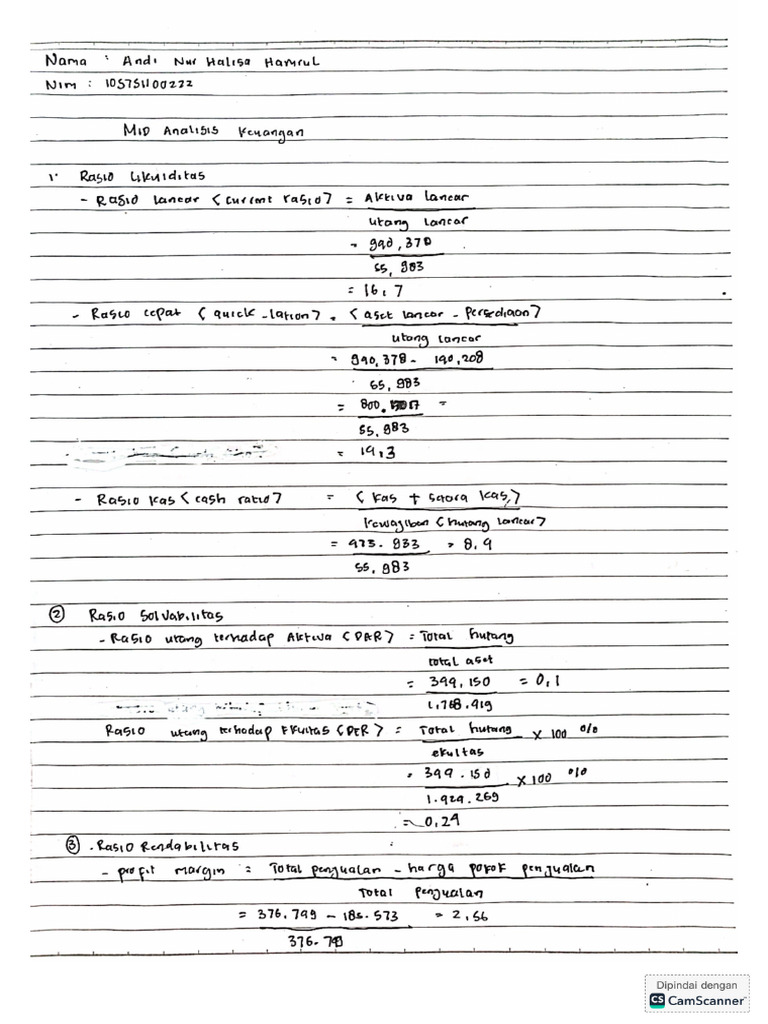 Nama : Andi Nur Halisa Hamrul
Nim : 105751100222
MID Analisis Keuangan
1. Rasio Likuiditas
- Rasio lancar (current rasio) = Aktiva lancar
utang lancar
= 990,370
55,983
= 16,7
- Rasio cepat (quick lation) = (aset lancar - Persediaan)
utang lancar
= 990,378 - 190,208
55,983
= 800. =
55.983
= 14,3
- Rasio kas (cash ratio) = (kas + setara kas)
kewajiban (hutang lancar)
= 473.933 = 8,9
55,983
② Rasio Solvabilitas
- Rasio utang terhadap Aktiva (DAR) = Total hutang
total aset
= 399,150 = 0,1
1,768.919
Rasio utang terhadap Ekuitas (DER) = Total hutang x 100 %
ekuitas
= 399.150 x 100 %
1.929.269
= 0,29
③ . Rasio Rendabilitas
- profit margin = Total penjualan - harga pokok penjualan
Total penjualan
= 376.799 - 185.573 = 2,56
376.79
Dipindai dengan
CS CamScanner